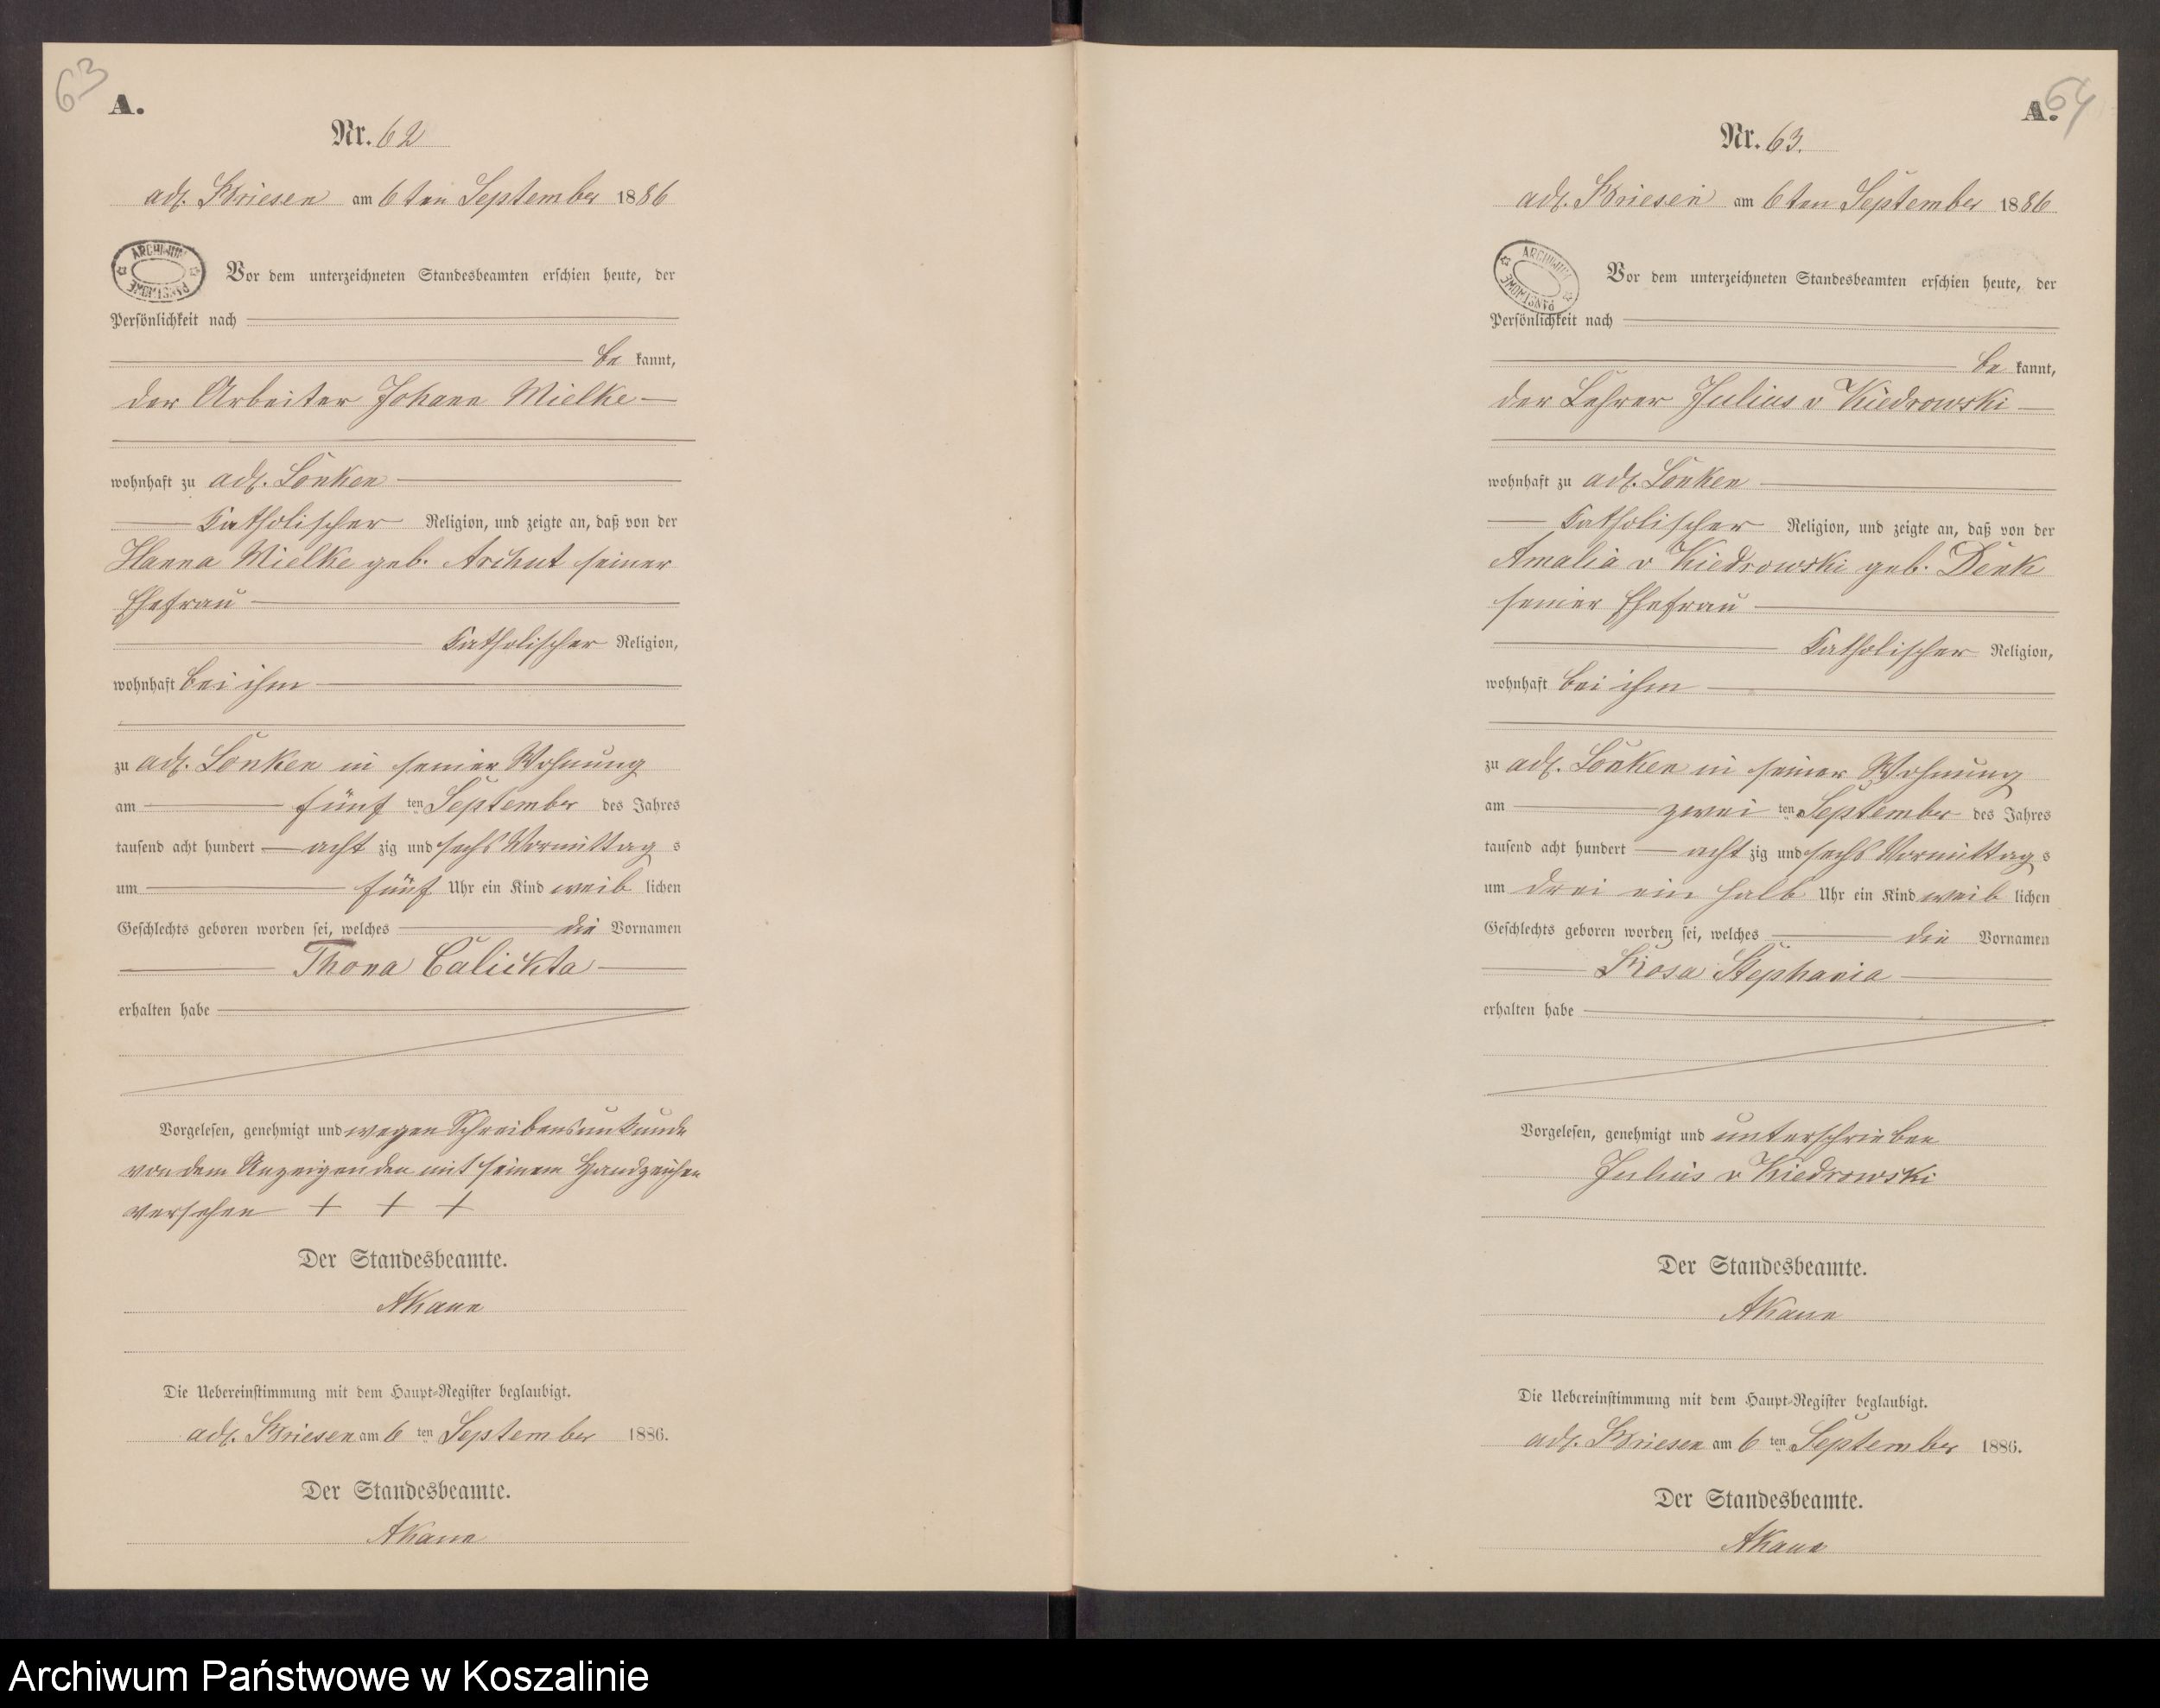 63
A.
Nr. 62
adl. Briesen am 6ten September 1886
ARCHIWUM PAŃSTWOWE
Vor dem unterzeichneten Standesbeamten erschien heute, der
Persönlichkeit nach
be kannt,
der Arbeiter Johann Mielke
wohnhaft zu adl. Lonken
Katholischer Religion, und zeigte an, daß von der
Hanna Mielke geb. Archut seiner
Ehefrau
Katholischer Religion,
wohnhaft bei ihm
zu adl. Lonken in seiner Wohnung
am fünf ten September des Jahres
tausend acht hundert acht zig und sechs Vormittag s
um fünf Uhr ein Kind weib lichen
Geschlechts geboren worden sei, welches die Vornamen
Thona Calickta
erhalten habe
Vorgelesen, genehmigt und wegen Schreibensunkunde
von dem Anzeigenden mit seinem Handzeichen
versehen + + +
Der Standesbeamte.
AKane
Die Uebereinstimmung mit dem Haupt-Register beglaubigt.
adl. Briesen am 6 ten September 1886.
Der Standesbeamte.
AKane
64
A.
Nr. 63.
adl. Briesen am 6ten September 1886
ARCHIWUM PAŃSTWOWE
Vor dem unterzeichneten Standesbeamten erschien heute, der
Persönlichkeit nach
be kannt,
der Lehrer Julius v Kiedrowski
wohnhaft zu adl. Lonken
Katholischer Religion, und zeigte an, daß von der
Amalia v Kiedrowski geb. Denk
seiner Ehefrau
Katholischer Religion,
wohnhaft bei ihm
zu adl. Lonken in seiner Wohnung
am zwei ten September des Jahres
tausend acht hundert acht zig und sechs Vormittag s
um drei ein halb Uhr ein Kind weib lichen
Geschlechts geboren worden sei, welches die Vornamen
Rosa Stephania
erhalten habe
Vorgelesen, genehmigt und unterschrieben
Julius v Kiedrowski
Der Standesbeamte.
AKane
Die Uebereinstimmung mit dem Haupt-Register beglaubigt.
adl. Briesen am 6 ten September 1886.
Der Standesbeamte.
AKane
Archiwum Państwowe w Koszalinie